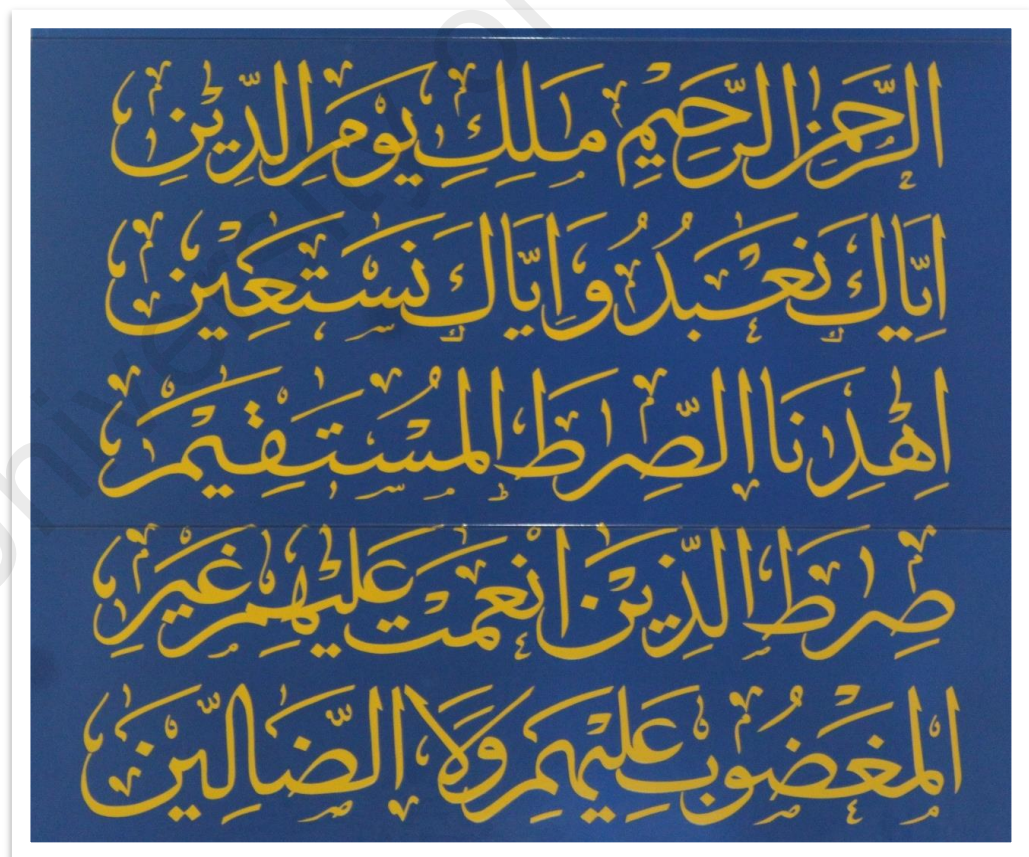 الرَّحْمٰنِ الرَّحِيْمِ مٰلِكِ يَوْمِ الدِّيْنِ
اِيَّاكَ نَعْبُدُ وَاِيَّاكَ نَسْتَعِيْنُ
اِهْدِنَا الصِّرٰطَ الْمُسْتَقِيْمَ
صِرٰطَ الَّذِيْنَ اَنْعَمْتَ عَلَيْهِمْ غَيْرِ
الْمَغْضُوْبِ عَلَيْهِمْ وَلَا الضَّالِّيْنَ